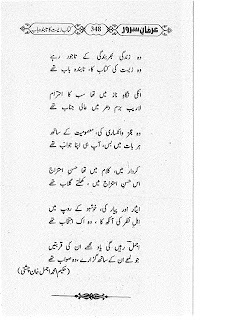 عرفان سرور
348
کتاب زیست کا تابندہ باب
وہ زندگی بھر بندگی کے تاجور رہے
وہ زیست کی کتاب کا، تابندہ باب تھے
انکی نگاہِ ناز میں تھا سب کا احترام
لاریب بزمِ دھر میں عالی جناب تھے
وہ عجز و انکساری کی، معصومیت کے ساتھ
ہر بات میں بس، آپ ہی اپنا جواب تھے
کردار میں، کلام میں تھا حسنِ امتزاج
اس حسنِ امتزاج میں، کھلتے گلاب تھے
ایثار اور پیار کی، خوشبو کے روپ میں
اہلِ نظر کی آنکھ کا، وہ اک انتخاب تھے
اجملؔ رہیں گی یاد مجھے ان کی قربتیں
جو لمحے ان کے ساتھ گزارے، وہ صواب تھے
(حکیم محمد اجمل خان چشتی)